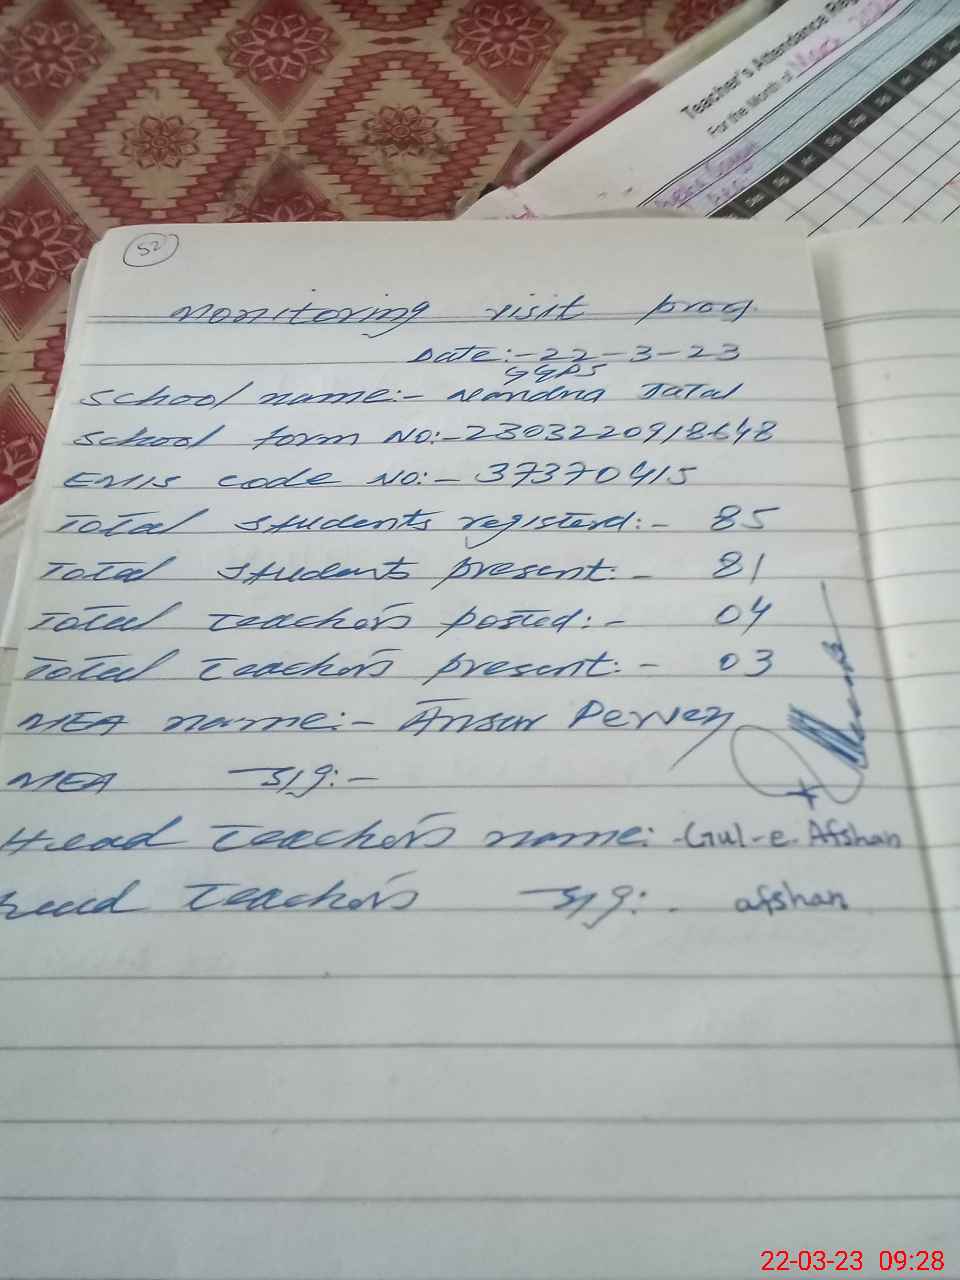 Teacher's Attendance Reg
For the Month of
52
Monitoring visit prog.
Date:- 22-3-23
GGPS
School name:- Nandna Jatal
School form No:- 2303220918648
EMIS code No:- 37370415
Total students registerd:- 85
Total students present:- 81
Total Teachers posted:- 04
Total Teachers present:- 03
MEA name:- Ansar Pervez
MEA Sig:-
Head Teachers name:- Gul-e-Afshan
Head Teachers Sig:- afshan
22-03-23 09:28